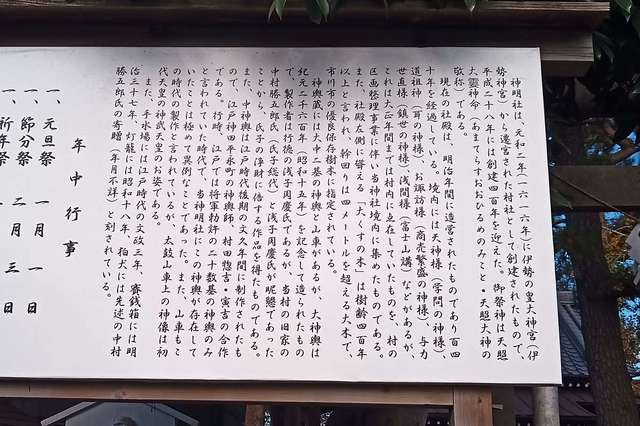 神明社は、元和二年(一六一六年)に伊勢の皇大神宮(伊
勢神宮)から遷宮された村社として創建されたもので、
平成二十八年には創建四百年を迎えた。御祭神は天照
大靈神命(あまてらすおおひるめのみこと・天照大神の
敬称)である。
現在の社殿は、明治年間に造営されたものであり百四
十年を経過している。境内には天神様(学問の神様)、
道祖神(耳の神様)、お諏訪様(商売繁盛の神様)、与力
世直様(鎮世の神様)、浅間様(富士山講)などがあるが、
これは大正年間までは村内に点在していたものを、村の
区画整理事業に伴い当神社境内に集めたものである。
また、社殿左側に聳える「大くすの木」は樹齢四百年
以上と言われ、幹回りは四メートルを超える大木で、
市川市の優良保存樹木に指定されている。
神輿蔵には大中二基の神輿と山車があるが、大神輿は
紀元二千六百年(昭和十五年)を記念して造られたもの
で、製作者は行徳の浅子周慶氏であるが、当村の旧家の
中村勝五郎氏(氏子総代)と浅子周慶氏が昵懇であった
ことから、氏子の浄財に倍する作品を得たものである。
また、中神輿は江戸時代後期の文久年間に制作されたも
ので、江戸神田平永町の神輿師、村田惣吉・寅吉の合作
である。行時、江戸では将軍勅許の二十数基の神輿のみ
と言われていた時代で、当神明社にこの神輿が存在して
いたことは極めて異例なことであった。また、山車もこ
の時代の製作と言われているが、太鼓山車上の神像は初
代天皇の神武天皇のお姿である。
また、手水場には江戸時代の文政三年、賽銭箱には明
治三十七年、灯籠には昭和十八年、狛犬には先述の中村
勝五郎氏の寄贈(年月不詳)と刻されている。
年中行事
一、元旦祭 一月一日
一、節分祭 二月三日
一、祈年祭